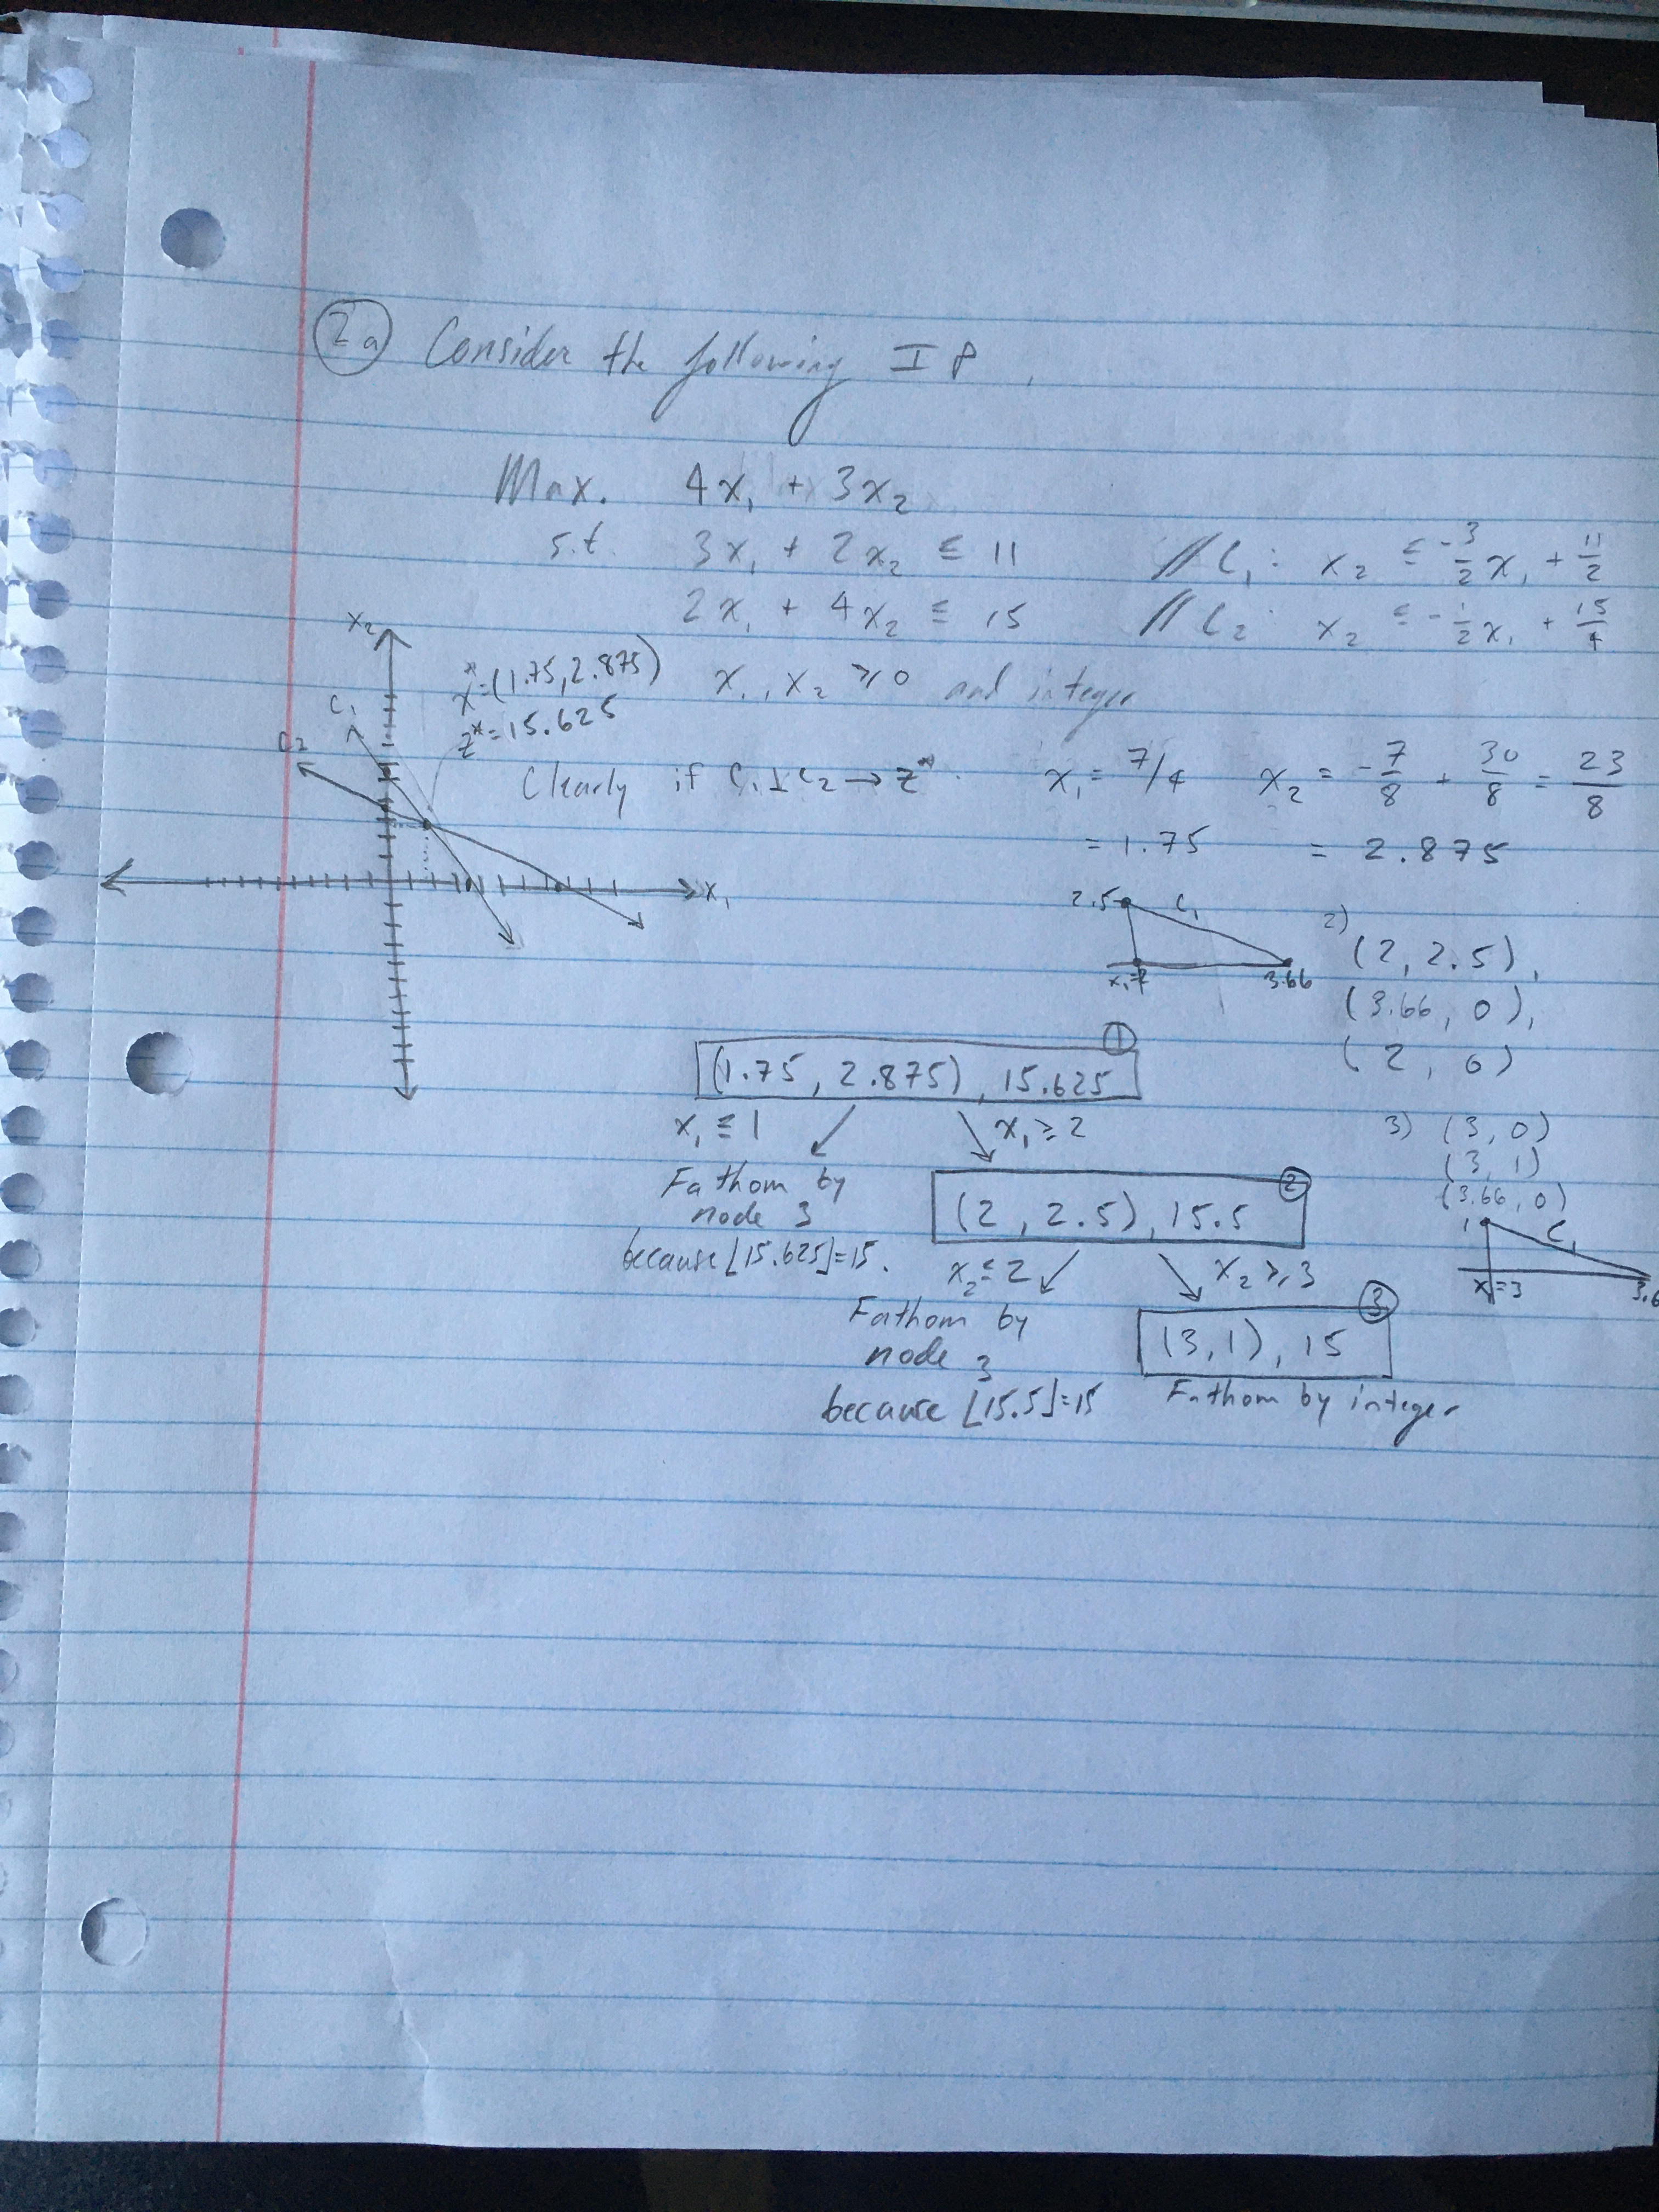 2a Consider the following IP.
Max. 4x₁ + 3x₂
s.t. 3x₁ + 2x₂ ≤ 11 // C₁: x₂ ≤ -3/2 x₁ + 11/2
2x₁ + 4x₂ ≤ 15 // C₂: x₂ ≤ -1/2 x₁ + 15/4
x₁, x₂ ≥ 0 and integer
x₂
x* = (1.75, 2.875)
z* = 15.625
C₁
C₂
x₁
Clearly if C₁ ⊥ C₂ → z*. x₁ = 7/4 x₂ = -7/8 + 30/8 = 23/8
= 1.75 = 2.875
2.5 C₁
x₁=2 3.66
2)
(2, 2.5),
(3.66, 0),
(2, 0)
1
(1.75, 2.875), 15.625
x₁ ≤ 1 x₁ ≥ 2
3) (3, 0)
(3, 1)
(3.66, 0)
1 C₁
x₁=3 3.6
Fathom by
node 3
because ⌊15.625⌋=15.
2
(2, 2.5), 15.5
x₂ ≤ 2 x₂ ≥ 3
Fathom by
node 3
because ⌊15.5⌋=15
3
(3, 1), 15
Fathom by integer